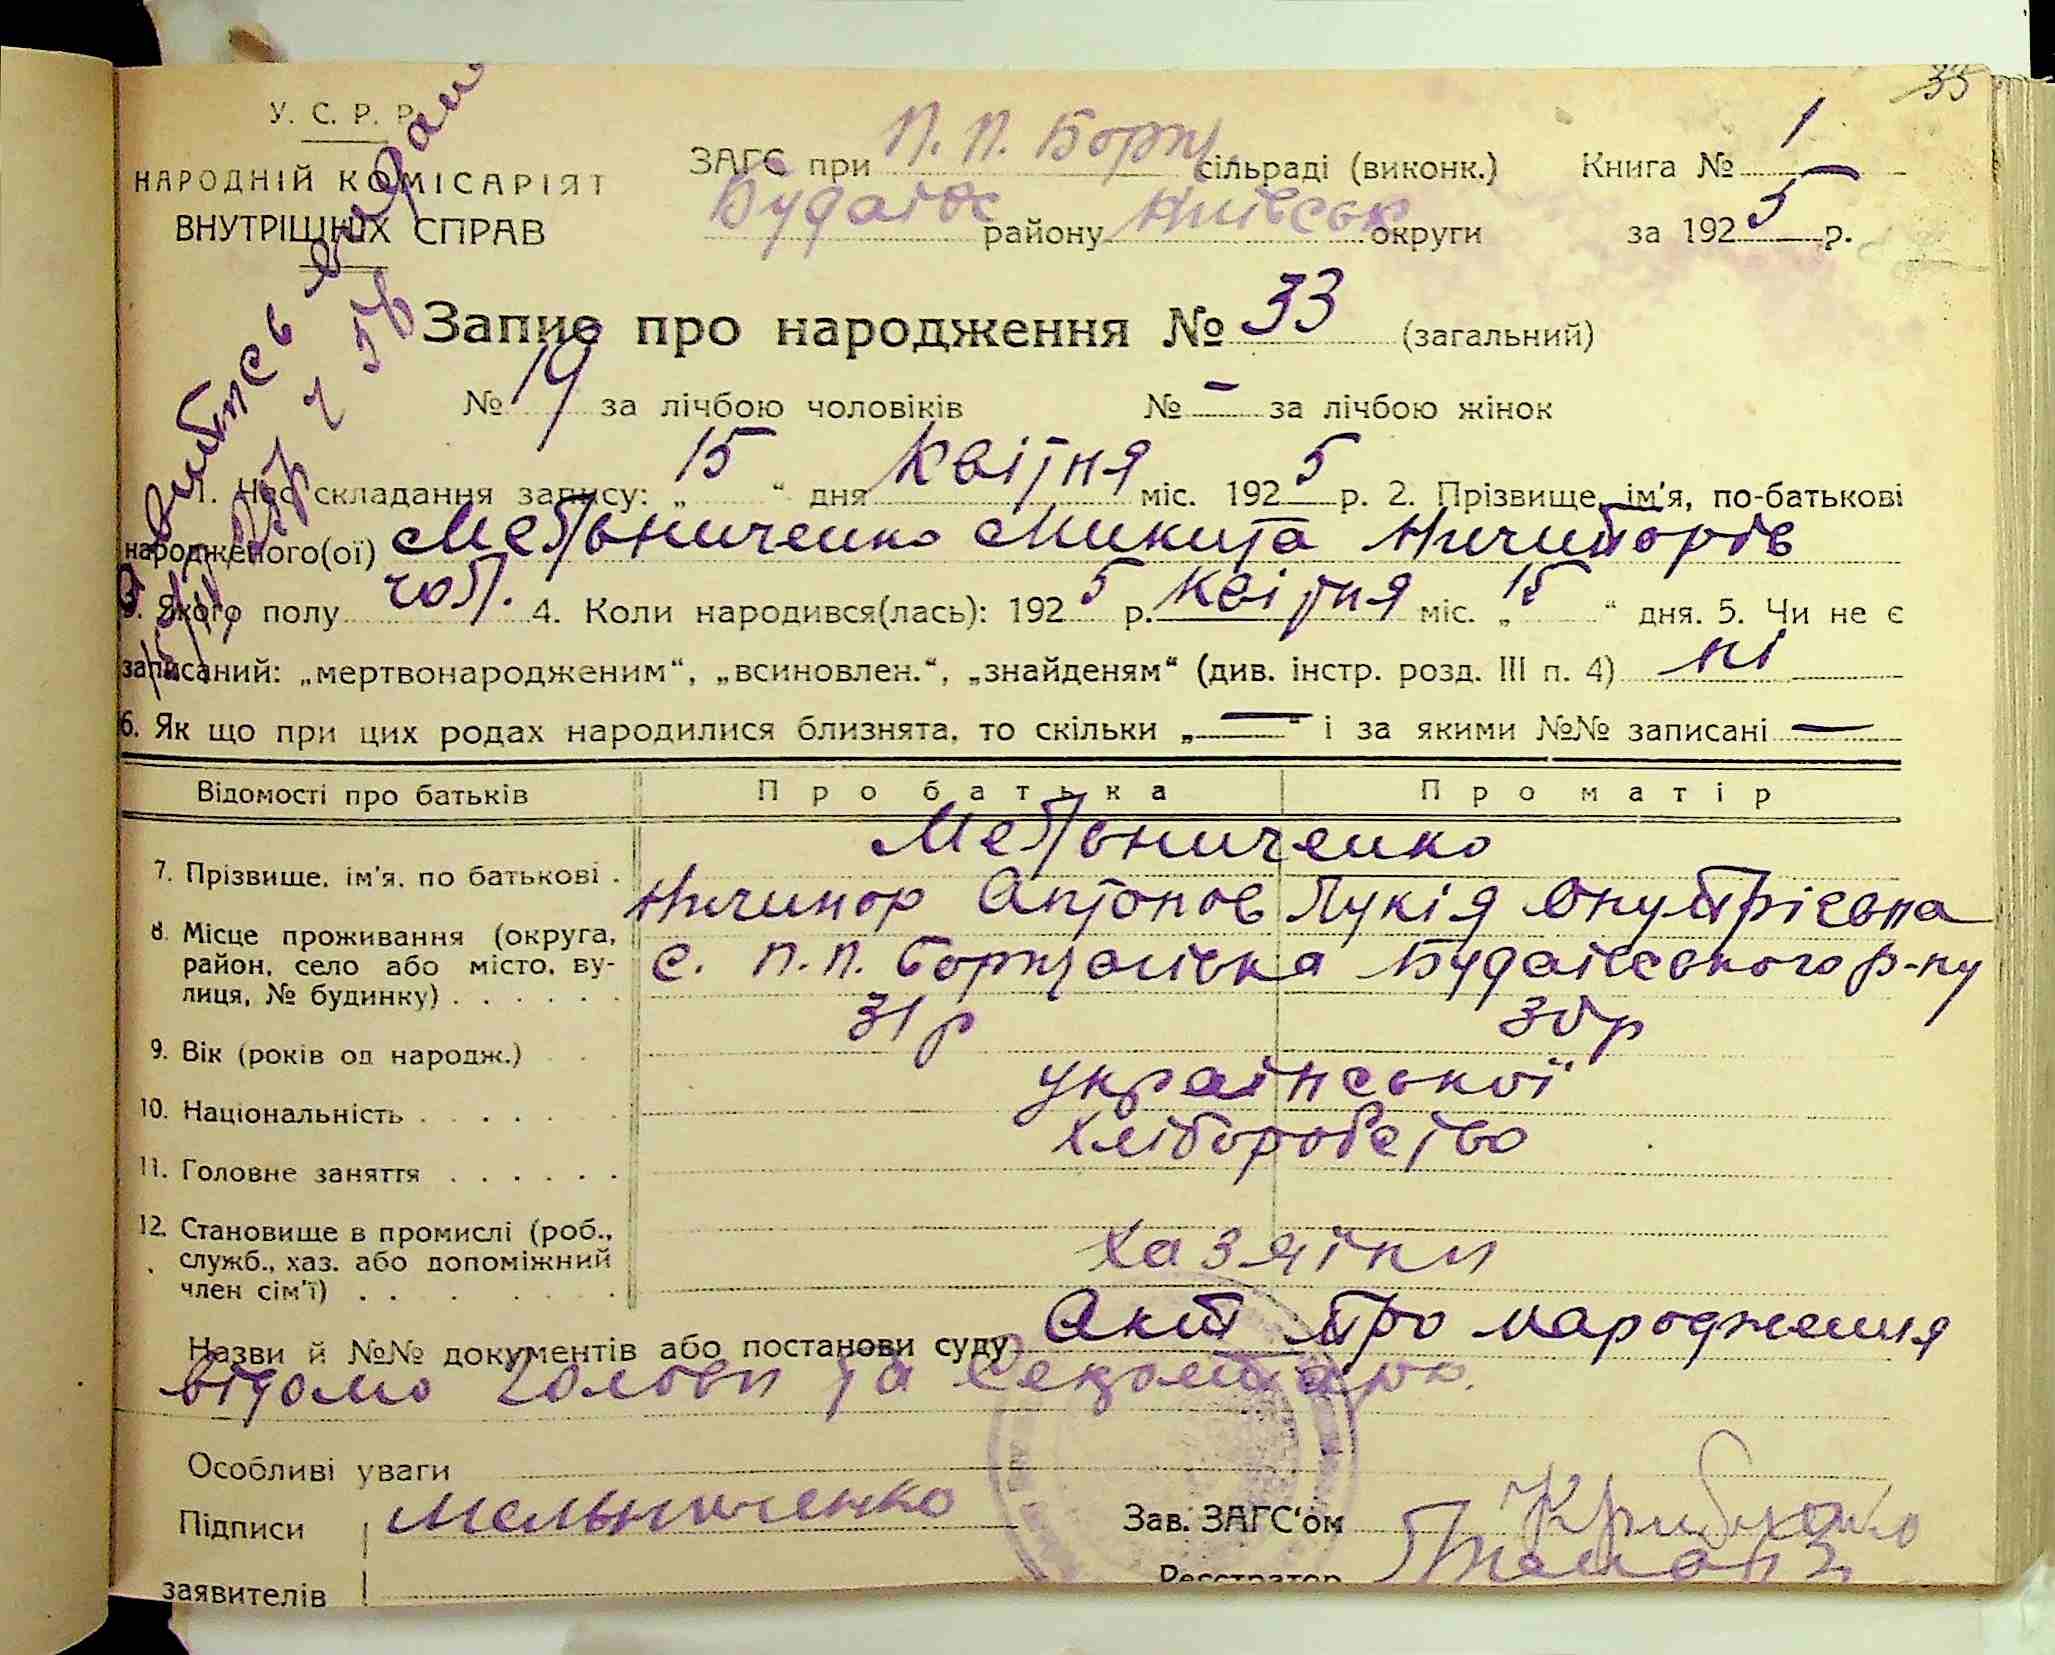 33
У. С. Р. Р.
НАРОДНІЙ КОМІСАРІЯТ
ВНУТРІШНІХ СПРАВ
ЗАГС при П. П. Борщ сільраді (виконк.) Книга № 1
Будаївс району Київськ округи за 1925 р.
Запис про народження № 33 (загальний)
№ 19 за лічбою чоловіків № – за лічбою жінок
1. Час складання запису: „15“ дня Квітня міс. 1925 р. 2. Прізвище, ім'я, по-батькові
народженого(ої) Мельниченко Микита Ничипорів
3. Якого полу чол. 4. Коли народився(лась): 1925 р. Квітня міс. „15“ дня. 5. Чи не є
записаний: „мертвонародженим“, „всиновлен.“, „знайденям“ (див. інстр. розд. III п. 4) ні
6. Як що при цих родах народилися близнята, то скільки „—“ і за якими №№ записані —
Відомості про батьків Про батька Про матір
Мельниченко
7. Прізвище, ім'я, по батькові . Ничипор Антонов Лукія Онуфріевна
8. Місце проживання (округа, район, село або місто, ву-
лиця, № будинку) . . . . . . с. П.П. Борщагівка Будаївського р-ну
9. Вік (років од народж.) . . 31 р 30 р
10. Національність . . . . . української
11. Головне заняття . . . . . . хліборобство
12. Становище в промислі (роб.,
служб., хаз. або допоміжний
член сім'ї) . . . . . . хазяїни
Назви й №№ документів або постанови суду Акт про народження
відомо Голови та Секретарю.
Особливі уваги
Підписи Мельниченко Зав. ЗАГС'ом
заявителів Реєстратор